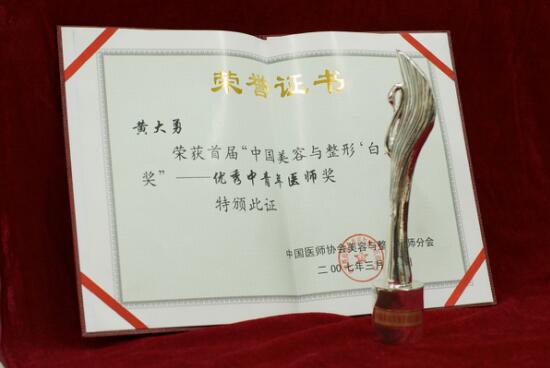 荣誉证书
黄大勇
荣获首届“中国美容与整形‘白
奖”——优秀中青年医师奖
特颁此证
中国医师协会美容与整 师分会
二00七年三月